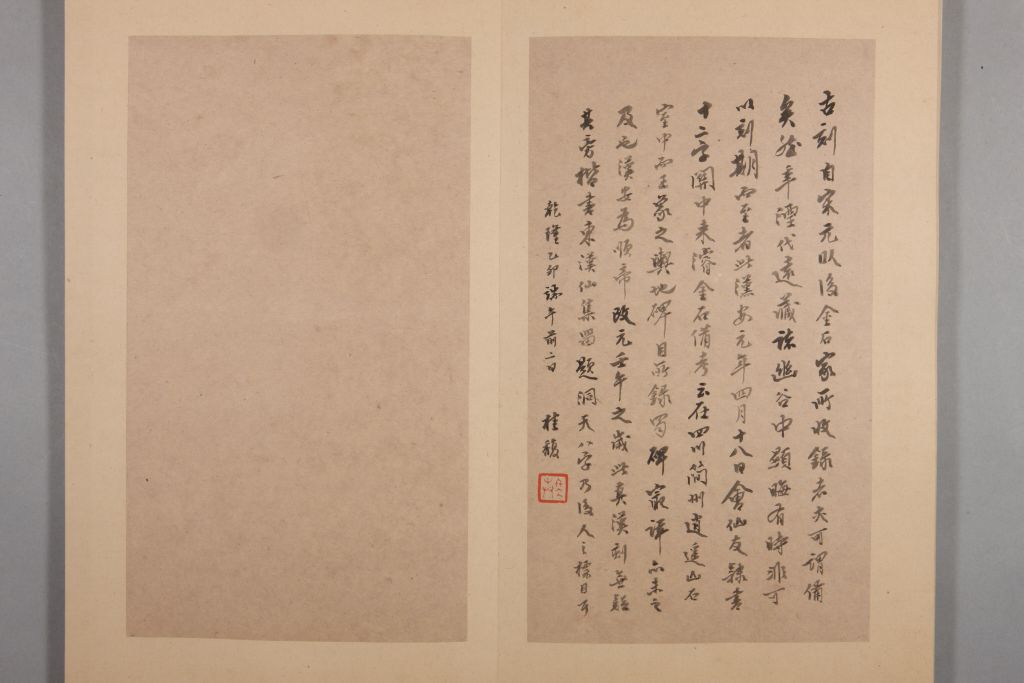 古刻自宋元以後金石家所收錄者夫可謂備
矣然年湮代遠藏諸幽谷中顯晦有時非可
以刻期而至者此漢安元年四月十八日會仙友隸書
十二字關中來濬金石備考云在四川簡州逍遙山石
室中而王象之輿地碑目所錄蜀碑最詳亦未之
及也漢安為順帝改元壬午之歲此真漢刻無疑
其旁楷書東漢仙集題洞天八字乃後人之標目耳
乾隆乙卯端午前二日 桂馥